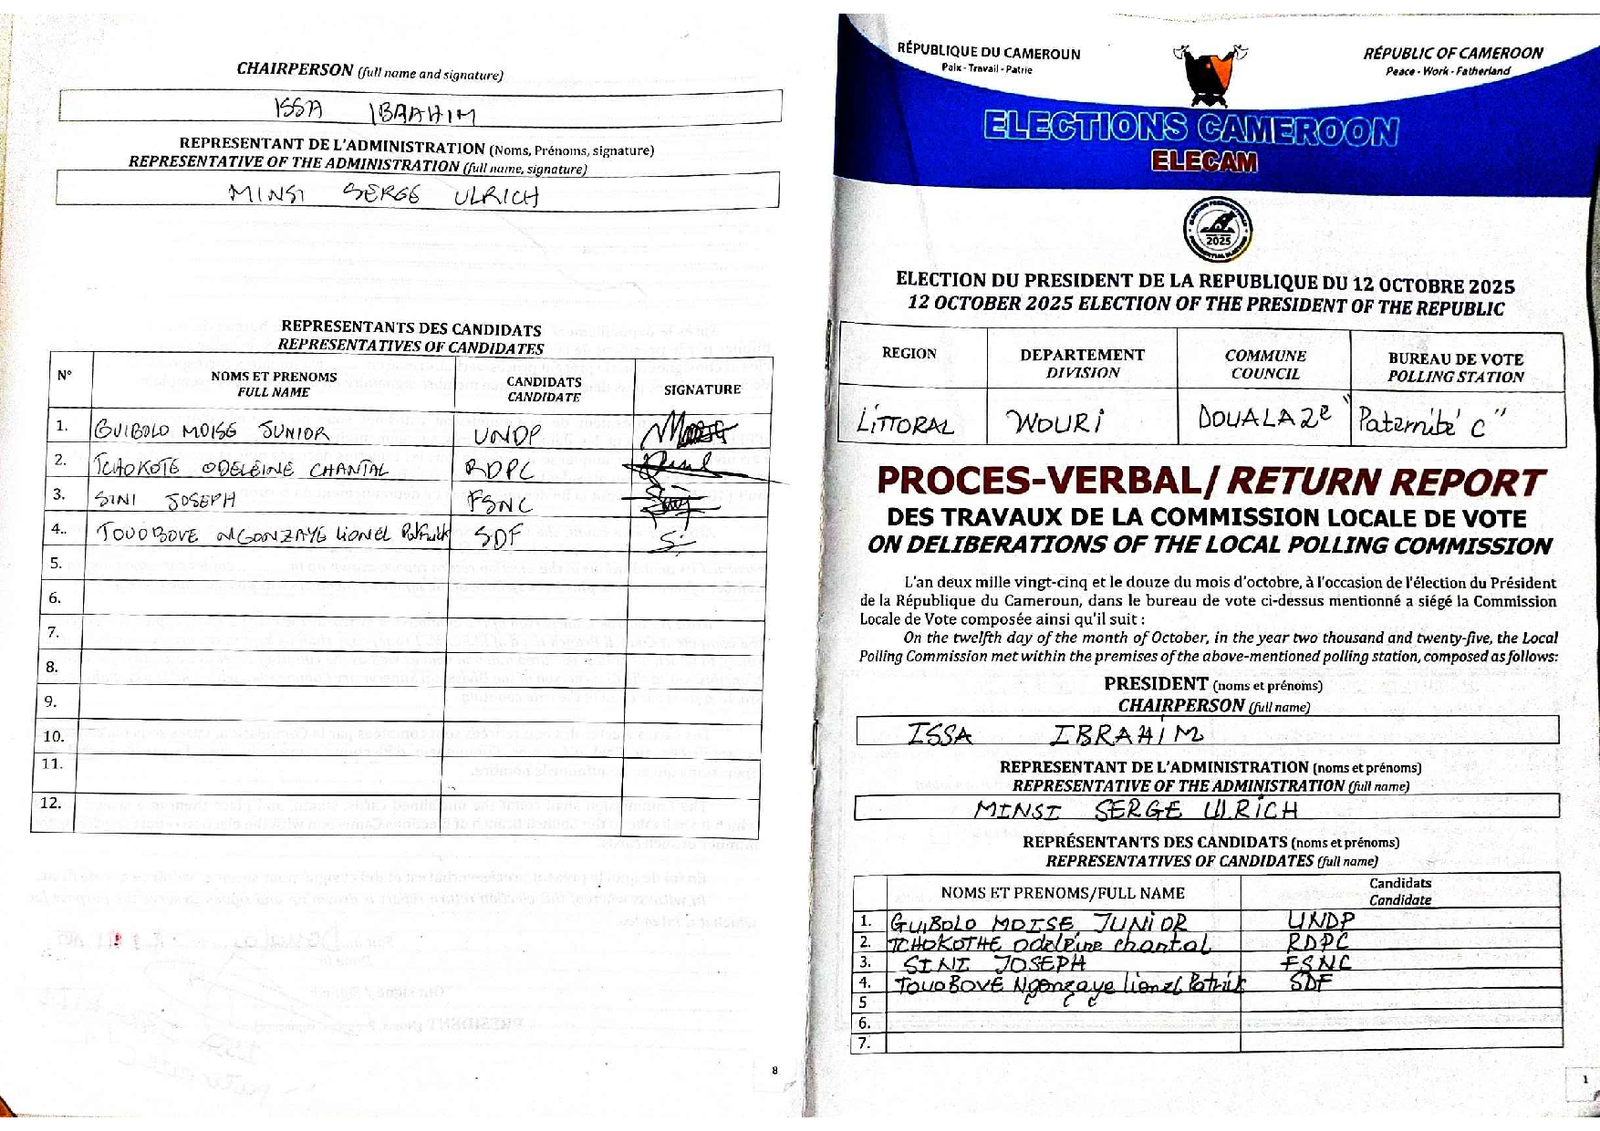 CHAIRPERSON (full name and signature)
ISSA IBRAHIM
REPRESENTANT DE L'ADMINISTRATION (Noms, Prénoms, signature)
REPRESENTATIVE OF THE ADMINISTRATION (full name, signature)
MINSI SERGE ULRICH
REPRESENTANTS DES CANDIDATS
REPRESENTATIVES OF CANDIDATES
N° NOMS ET PRENOMS FULL NAME CANDIDATS CANDIDATE SIGNATURE
1. GUIBOLO MOISE JUNIOR UNDP
2. TCHOKOTE ODELEINE CHANTAL RDPC
3. SINI JOSEPH FSNC
4. TOUOBOVE NGONZAYE LIONEL Patrick SDF
5.
6.
7.
8.
9.
10.
11.
12.
8
RÉPUBLIQUE DU CAMEROUN
Paix - Travail - Patrie
RÉPUBLIC OF CAMEROON
Peace - Work - Fatherland
ELECTIONS CAMEROON
ELECAM
2025
ELECTION DU PRESIDENT DE LA REPUBLIQUE DU 12 OCTOBRE 2025
12 OCTOBER 2025 ELECTION OF THE PRESIDENT OF THE REPUBLIC
REGION DEPARTEMENT DIVISION COMMUNE COUNCIL BUREAU DE VOTE POLLING STATION
LITTORAL WOURI DOUALA 2e "Paternité C"
PROCES-VERBAL/ RETURN REPORT
DES TRAVAUX DE LA COMMISSION LOCALE DE VOTE
ON DELIBERATIONS OF THE LOCAL POLLING COMMISSION
L'an deux mille vingt-cinq et le douze du mois d'octobre, à l'occasion de l'élection du Président
de la République du Cameroun, dans le bureau de vote ci-dessus mentionné a siégé la Commission
Locale de Vote composée ainsi qu'il suit :
On the twelfth day of the month of October, in the year two thousand and twenty-five, the Local
Polling Commission met within the premises of the above-mentioned polling station, composed as follows:
PRESIDENT (noms et prénoms)
CHAIRPERSON (full name)
ISSA IBRAHIM
REPRESENTANT DE L'ADMINISTRATION (noms et prénoms)
REPRESENTATIVE OF THE ADMINISTRATION (full name)
MINSI SERGE ULRICH
REPRÉSENTANTS DES CANDIDATS (noms et prénoms)
REPRESENTATIVES OF CANDIDATES (full name)
NOMS ET PRENOMS/FULL NAME Candidats Candidate
1. GUIBOLO MOISE JUNIOR UNDP
2. TCHOKOTHE Odeleine chantal RDPC
3. SINI JOSEPH FSNC
4. TOUOBOVE Ngonzaye lionel Patrick SDF
5
6.
7.
1